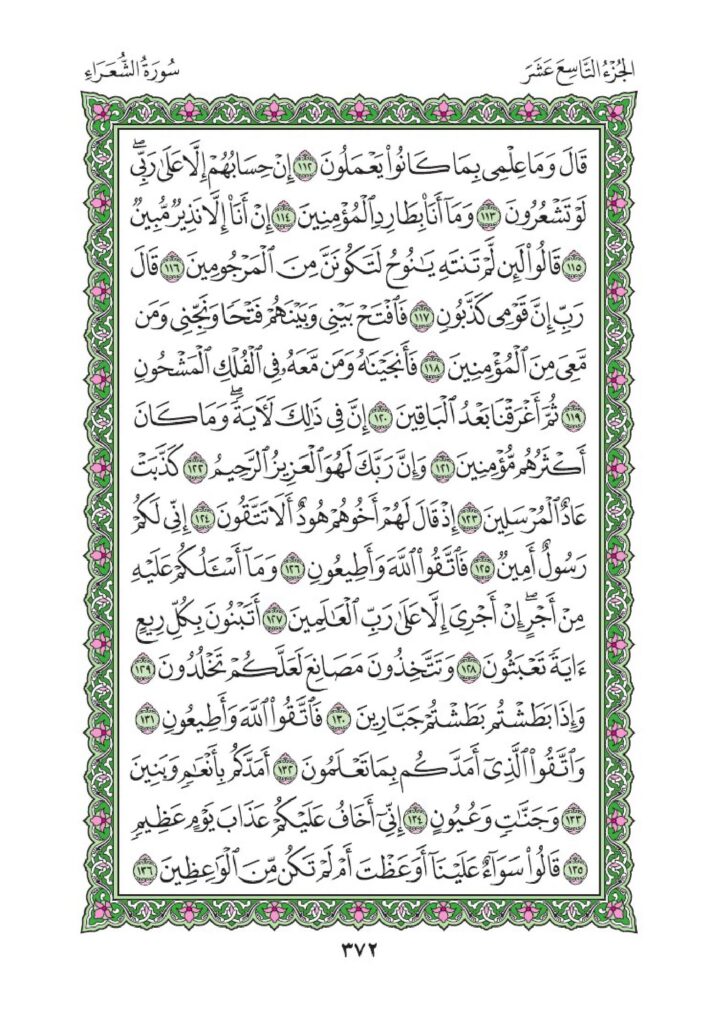 الجُزْءُ التَّاسِعَ عَشَرَ
سُورَةُ الشُّعَرَاءِ
قَالَ وَمَا عِلْمِى بِمَا كَانُوا۟ يَعْمَلُونَ ١١٢ إِنْ حِسَابُهُمْ إِلَّا عَلَىٰ رَبِّىۖ
لَوْ تَشْعُرُونَ ١١٣ وَمَآ أَنَا۠ بِطَارِدِ ٱلْمُؤْمِنِينَ ١١٤ إِنْ أَنَا۠ إِلَّا نَذِيرٌ مُّبِينٌ
١١٥ قَالُوا۟ لَئِن لَّمْ تَنتَهِ يَٰنُوحُ لَتَكُونَنَّ مِنَ ٱلْمَرْجُومِينَ ١١٦ قَالَ
رَبِّ إِنَّ قَوْمِى كَذَّبُونِ ١١٧ فَٱفْتَحْ بَيْنِى وَبَيْنَهُمْ فَتْحًا وَنَجِّنِى وَمَن
مَّعِىَ مِنَ ٱلْمُؤْمِنِينَ ١١٨ فَأَنجَيْنَٰهُ وَمَن مَّعَهُۥ فِى ٱلْفُلْكِ ٱلْمَشْحُونِ
١١٩ ثُمَّ أَغْرَقْنَا بَعْدُ ٱلْبَاقِينَ ١٢٠ إِنَّ فِى ذَٰلِكَ لَءَايَةًۖ وَمَا كَانَ
أَكْثَرُهُم مُّؤْمِنِينَ ١٢١ وَإِنَّ رَبَّكَ لَهُوَ ٱلْعَزِيزُ ٱلرَّحِيمُ ١٢٢ كَذَّبَتْ
عَادٌ ٱلْمُرْسَلِينَ ١٢٣ إِذْ قَالَ لَهُمْ أَخُوهُمْ هُودٌ أَلَا تَتَّقُونَ ١٢٤ إِنِّى لَكُمْ
رَسُولٌ أَمِينٌ ١٢٥ فَٱتَّقُوا۟ ٱللَّهَ وَأَطِيعُونِ ١٢٦ وَمَآ أَسْـَٔلُكُمْ عَلَيْهِ
مِنْ أَجْرٍۖ إِنْ أَجْرِىَ إِلَّا عَلَىٰ رَبِّ ٱلْعَٰلَمِينَ ١٢٧ أَتَبْنُونَ بِكُلِّ رِيعٍ
ءَايَةً تَعْبَثُونَ ١٢٨ وَتَتَّخِذُونَ مَصَانِعَ لَعَلَّكُمْ تَخْلُدُونَ ١٢٩
وَإِذَا بَطَشْتُم بَطَشْتُمْ جَبَّارِينَ ١٣٠ فَٱتَّقُوا۟ ٱللَّهَ وَأَطِيعُونِ ١٣١
وَٱتَّقُوا۟ ٱلَّذِىٓ أَمَدَّكُم بِمَا تَعْلَمُونَ ١٣٢ أَمَدَّكُم بِأَنْعَٰمٍ وَبَنِينَ
١٣٣ وَجَنَّٰتٍ وَعُيُونٍ ١٣٤ إِنِّىٓ أَخَافُ عَلَيْكُمْ عَذَابَ يَوْمٍ عَظِيمٍ
١٣٥ قَالُوا۟ سَوَآءٌ عَلَيْنَآ أَوَعَظْتَ أَمْ لَمْ تَكُن مِّنَ ٱلْوَٰعِظِينَ ١٣٦
٣٧٢